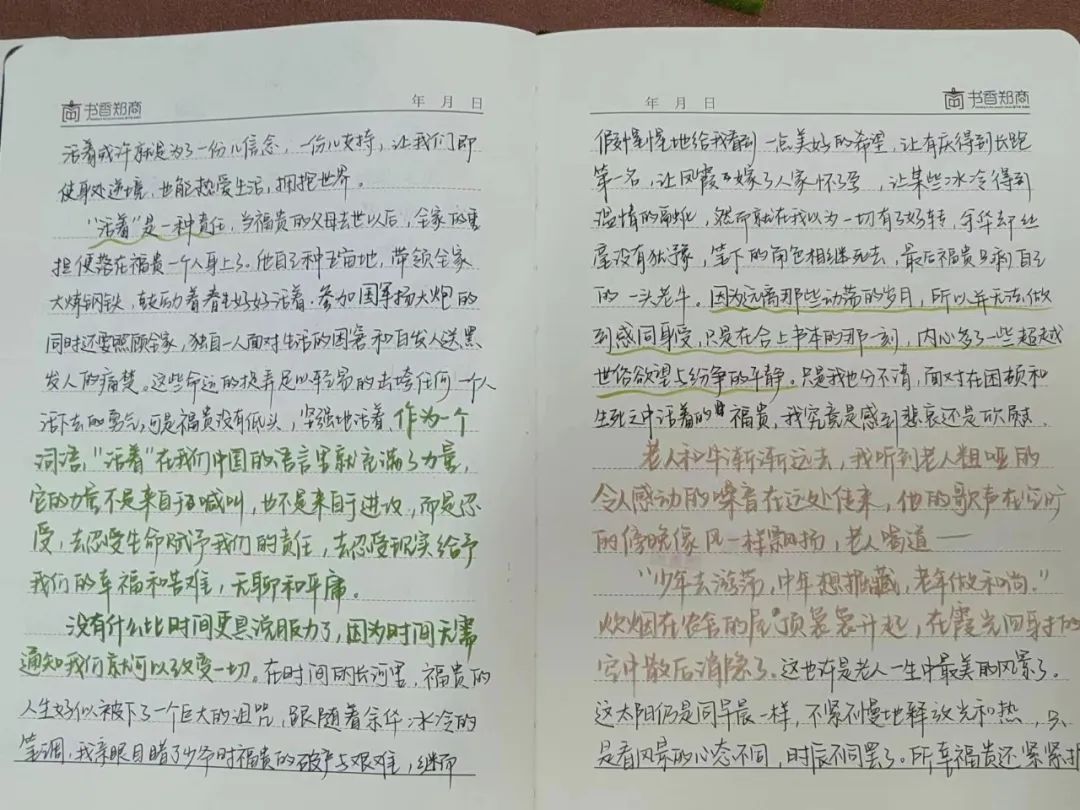 书香郑商
年 月 日
活着或许就是为了一份儿信念，一份儿支持，让我们即
使身处逆境，也能热爱生活，拥抱世界。
“活着”是一种责任，当福贵的父母去世以后，全家的重
担便落在福贵一个人身上了。他自己种五亩地，带领全家
大炼钢铁，鼓励着春生好好活着。参加国军扬大炮的
同时还要照顾全家，独自一人面对生活的困窘和白发人送黑
发人的痛楚。这些命运的捉弄足以轻易的击垮任何一个人
活下去的勇气，可是福贵没有低头，坚强地活着。作为一个
词语，“活着”在我们中国的语言里就充满了力量，
它的力量不是来自于喊叫，也不是来自于进攻，而是忍
受，去忍受生命赋予我们的责任，去忍受现实给予
我们的幸福和苦难，无聊和平庸。
没有什么比时间更具说服力了，因为时间无需
通知我们就可以改变一切。在时间的长河里，福贵的
人生好似被下了一个巨大的诅咒，跟随着余华冰冷的
笔调，我亲眼目睹了少爷时福贵的破产与艰难，继而
年 月 日
书香郑商
慢慢地给我看到一点美好的希望，让有庆得到长跑
第一名，让凤霞嫁了人家怀孕，让某些冰冷得到
温情的融化，然而就在我以为一切有了好转，余华却丝
毫没有犹豫，笔下的角色相继死去，最后福贵只剩自己
的一头老牛。因为远离那些动荡的岁月，所以并无法做
到感同身受，只是在合上书本的那一刻，内心多了一些超越
世俗欲望与纷争的平静。只是我也分不清，面对在困顿和
生死之中活着的福贵，我究竟是感到悲哀还是欣慰。
老人和牛渐渐远去，我听到老人粗哑的
令人感动的嗓音在远处传来，他的歌声在空旷
的傍晚像风一样飘扬，老人唱道—
“少年去游荡，中年想掘藏，老年做和尚。”
炊烟在农舍的屋顶袅袅升起，在霞光四射的
空中散后消隐了。这也许是老人一生中最美的风景了。
这太阳仍是同早晨一样，不紧不慢地释放光和热，只
是看风景的心态不同，时辰不同罢了。所幸福贵还紧紧